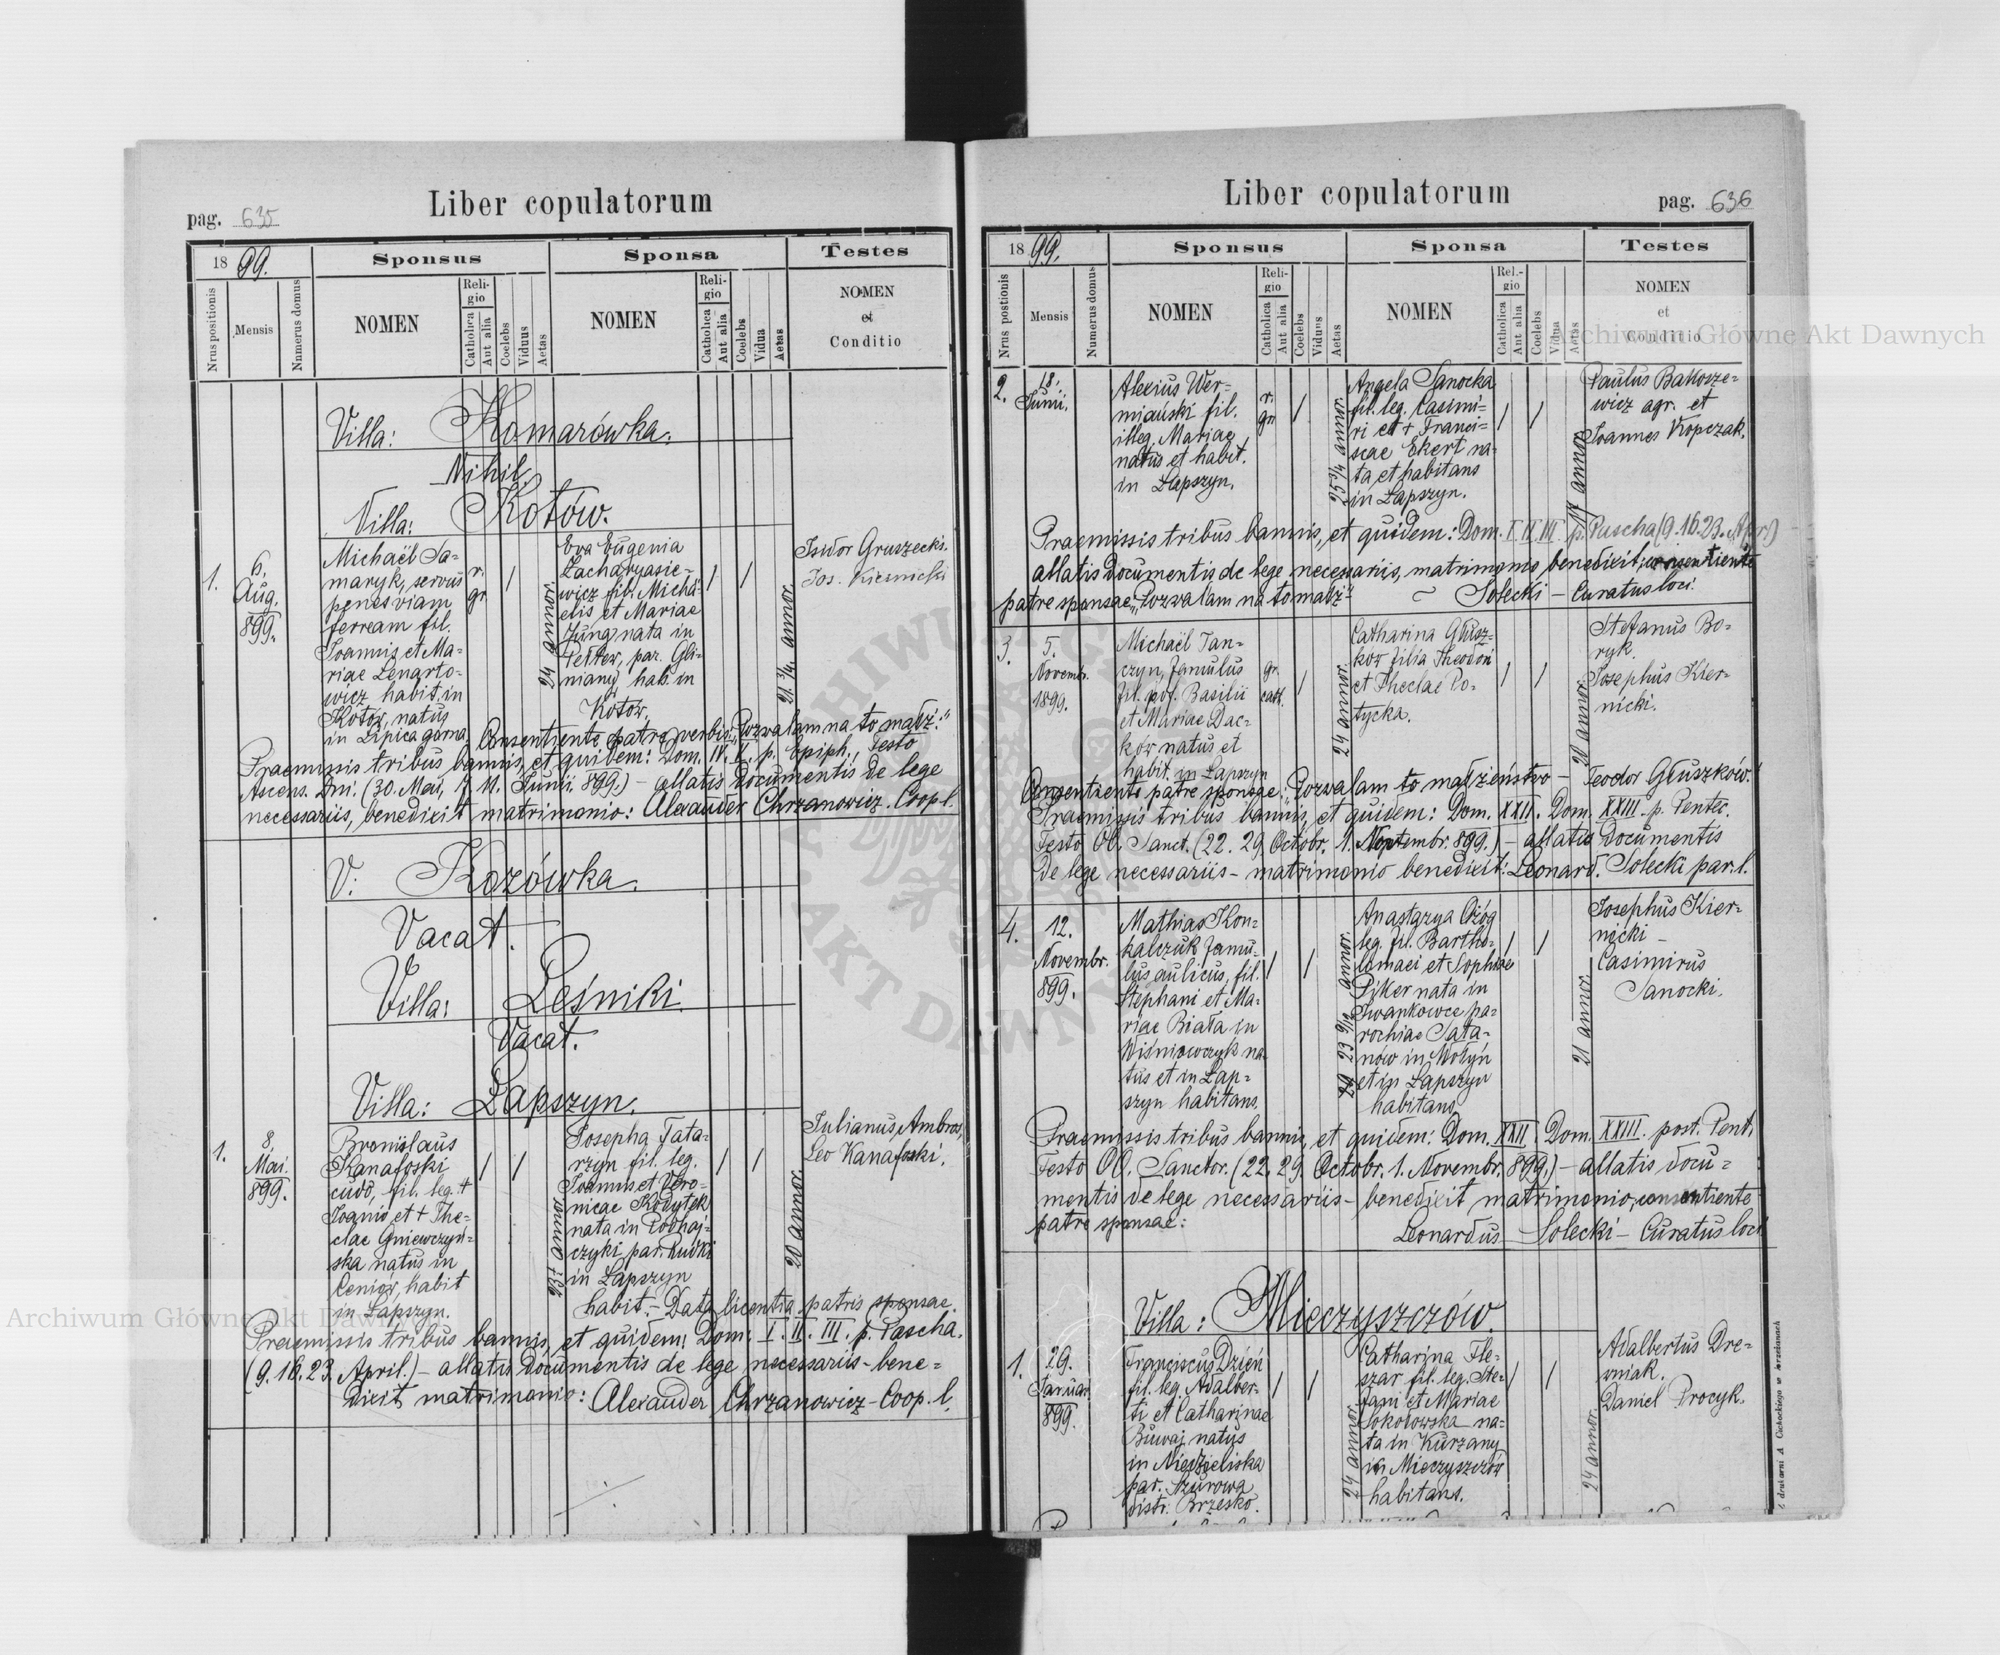 Liber copulatorum
pag. 635
18 99.
Sponsus
Sponsa
Testes
Nrus positionis
Mensis
Numerus domus
NOMEN
Religio
Catholica
Aut alia
Coelebs
Viduus
Aetas
NOMEN
Religio
Catholica
Aut alia
Coelebs
Vidua
Aetas
NOMEN
et
Conditio
Villa: Komarówka.
Nihil.
Villa: Kotów.
1.
6.
Aug.
899.
Michaël Ja-
maryk, servus
penes viam
ferream fil.
Joannis et Ma-
riae Lenarto-
wicz habit. in
Kotów, natus
in Lipica gorna,
r.
gr.
24 annor.
Eva Eugenia
Zacharyasie-
wicz fil. Micha-
elis et Mariae
Jung nata in
par. Gli-
niany, hab. in
Kotów.
21 3/4 annor.
Isidor Gruszecki.
Jos. Kiernicki
Consentiente patre verbis: "Pozwalam na to małż."
Praemissis tribus bannis, et quidem: Dom. p. Epiph., Festo
Ascens. Dni. (30. Mai, Junii 899.) – allatis documentis de lege
necessariis, benedixit matrimonio: Alexander Chrzanowicz. Coop. l.
V: Kozówka.
Vacat.
Villa: Leśniki.
Vacat.
Villa: Łapszyn.
1.
8.
Mai.
899.
Bronislaus
Kanafoski
fil. leg. +
Joanis et + The-
clae Gniewczyń-
ska natus in
Ceniów, habit
in Łapszyn.
annor.
Josepha Tata-
rzyn fil. leg.
Joannis et Vero-
nicae
nata in Podhaj-
czyki par. Rudki
in Łapszyn
habit. – Data licentia patris sponsae.
20 annor.
Julianus Ambros,
Leo Kanafoski.
Praemissis tribus bannis, et quidem: Dom. I. II. III. p. Pascha.
(9. 16. 23. April.) – allatis documentis de lege necessariis – bene=
dixit matrimonio: Alexander Chrzanowicz – Coop. l.
Liber copulatorum
pag. 636
18 99.
Sponsus
Sponsa
Testes
Nrus postionis
Mensis
Numerus domus
NOMEN
Religio
Catholica
Aut alia
Coelebs
Viduus
Aetas
NOMEN
Rel.-gio
Catholica
Aut alia
Coelebs
Vidua
Aetas
NOMEN
et
Conditio
2.
18.
Junii.
Alexius Wer-
miański fil.
illeg. Mariae
natus et habit.
in Łapszyn.
r.
gr
25 3/4 annor.
Angela Sanocka
fil. leg. Casimi=
ri et + Franci=
scae Ekert na-
ta et habitans
in Łapszyn.
annor.
Paulus Bartosze-
wicz agr. et
Joannes Kopczak.
Praemissis tribus bannis, et quidem: Dom. I II III p. Pascha (9. 16. 23. Apr.)
allatis documentis de lege necessariis, matrimonio benedixit; consentiente
patre sponsae: "Pozwalam na to małż." – Solecki – Curatus loci.
3.
5.
Novembr.
1899.
Michaël Jan-
czyn, famulus
fil. Basilii
et Mariae Dac-
ków natus et
habit. in Łapszyn
gr.
cath.
24 annor.
Catharina Głusz-
ków filia Theodori
et Theclae Po-
tycka.
20 annor.
Stefanus Bo-
ryk.
Josephus Kier-
nicki.
Consentiente patre sponsae: "Pozwalam to małżeństwo – Teodor Głuszków."
Praemissis tribus bannis, et quidem: Dom. XXII. Dom. XXIII. p. Pentec.
Festo OO. Sanct. (22. 29. Octobr. 1. Novembr. 899.) – allatis documentis
de lege necessariis – matrimonio benedixit: Leonard. Solecki par. l.
4.
12.
Novembr.
899.
Mathias Kon-
kalczuk famu-
lus aulicus, fil.
Stephani et Ma-
riae Biała in
Wiśniowczyk na-
tus et in Łap-
szyn habitans.
23 9/12 annor.
Anastazya Ożóg
leg. fil. Bartho-
lomaei et Sophiae
Piker nata in
Iwankowce pa-
rochiae Sata-
nów in Wołyń
et in Łapszyn
habitans.
21 annor.
Josephus Kier-
nicki –
Casimirus
Sanocki.
Praemissis tribus bannis, et quidem: Dom. XXII. Dom. XXIII. post. Pent.
Festo OO. Sanctor. (22. 29. Octobr. 1. Novembr. 899.) – allatis docu=
mentis de lege necessariis – benedixit matrimonio, consentiente
patre sponsae:
Leonardus Solecki – Curatus loci
Villa: Mieczyszczów
1.
29.
Januar.
899.
Franciscus Dzień
fil. leg. Adalber-
ti et Catharinae
Buwaj natus
in Niedzieliska
par. Szurowa
distr. Brzesko.
24 annor.
Catharina Fle-
szar fil. leg. Ste-
fani et Mariae
Sokołowska na-
ta in Kurzany
in Mieczyszczów
habitans.
24 annor.
Adalbertus Dre-
wniak.
Daniel Procyk.
Z drukarni A Cichockiego w Brzeżanach
Archiwum Główne Akt Dawnych
Archiwum Główne Akt Dawnych
ARCHIWUM GŁÓWNE AKT DAWNYCH